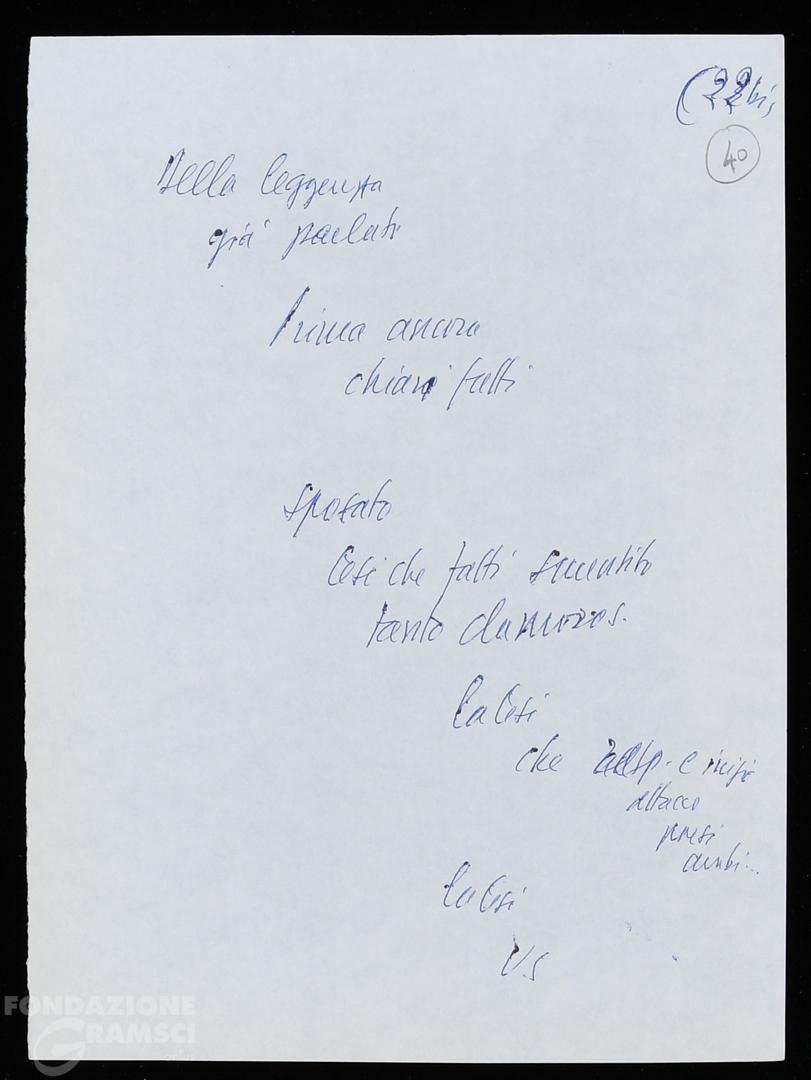 (22 bis
40
Della leggenda
già parlato
Prima ancora
chiari fatti
spostato
tesi che fatti smentito
tanto clamoros.
la tesi
che
attacco
paesi
arabi...
la tesi
V.S
FONDAZIONE
GRAMSCI